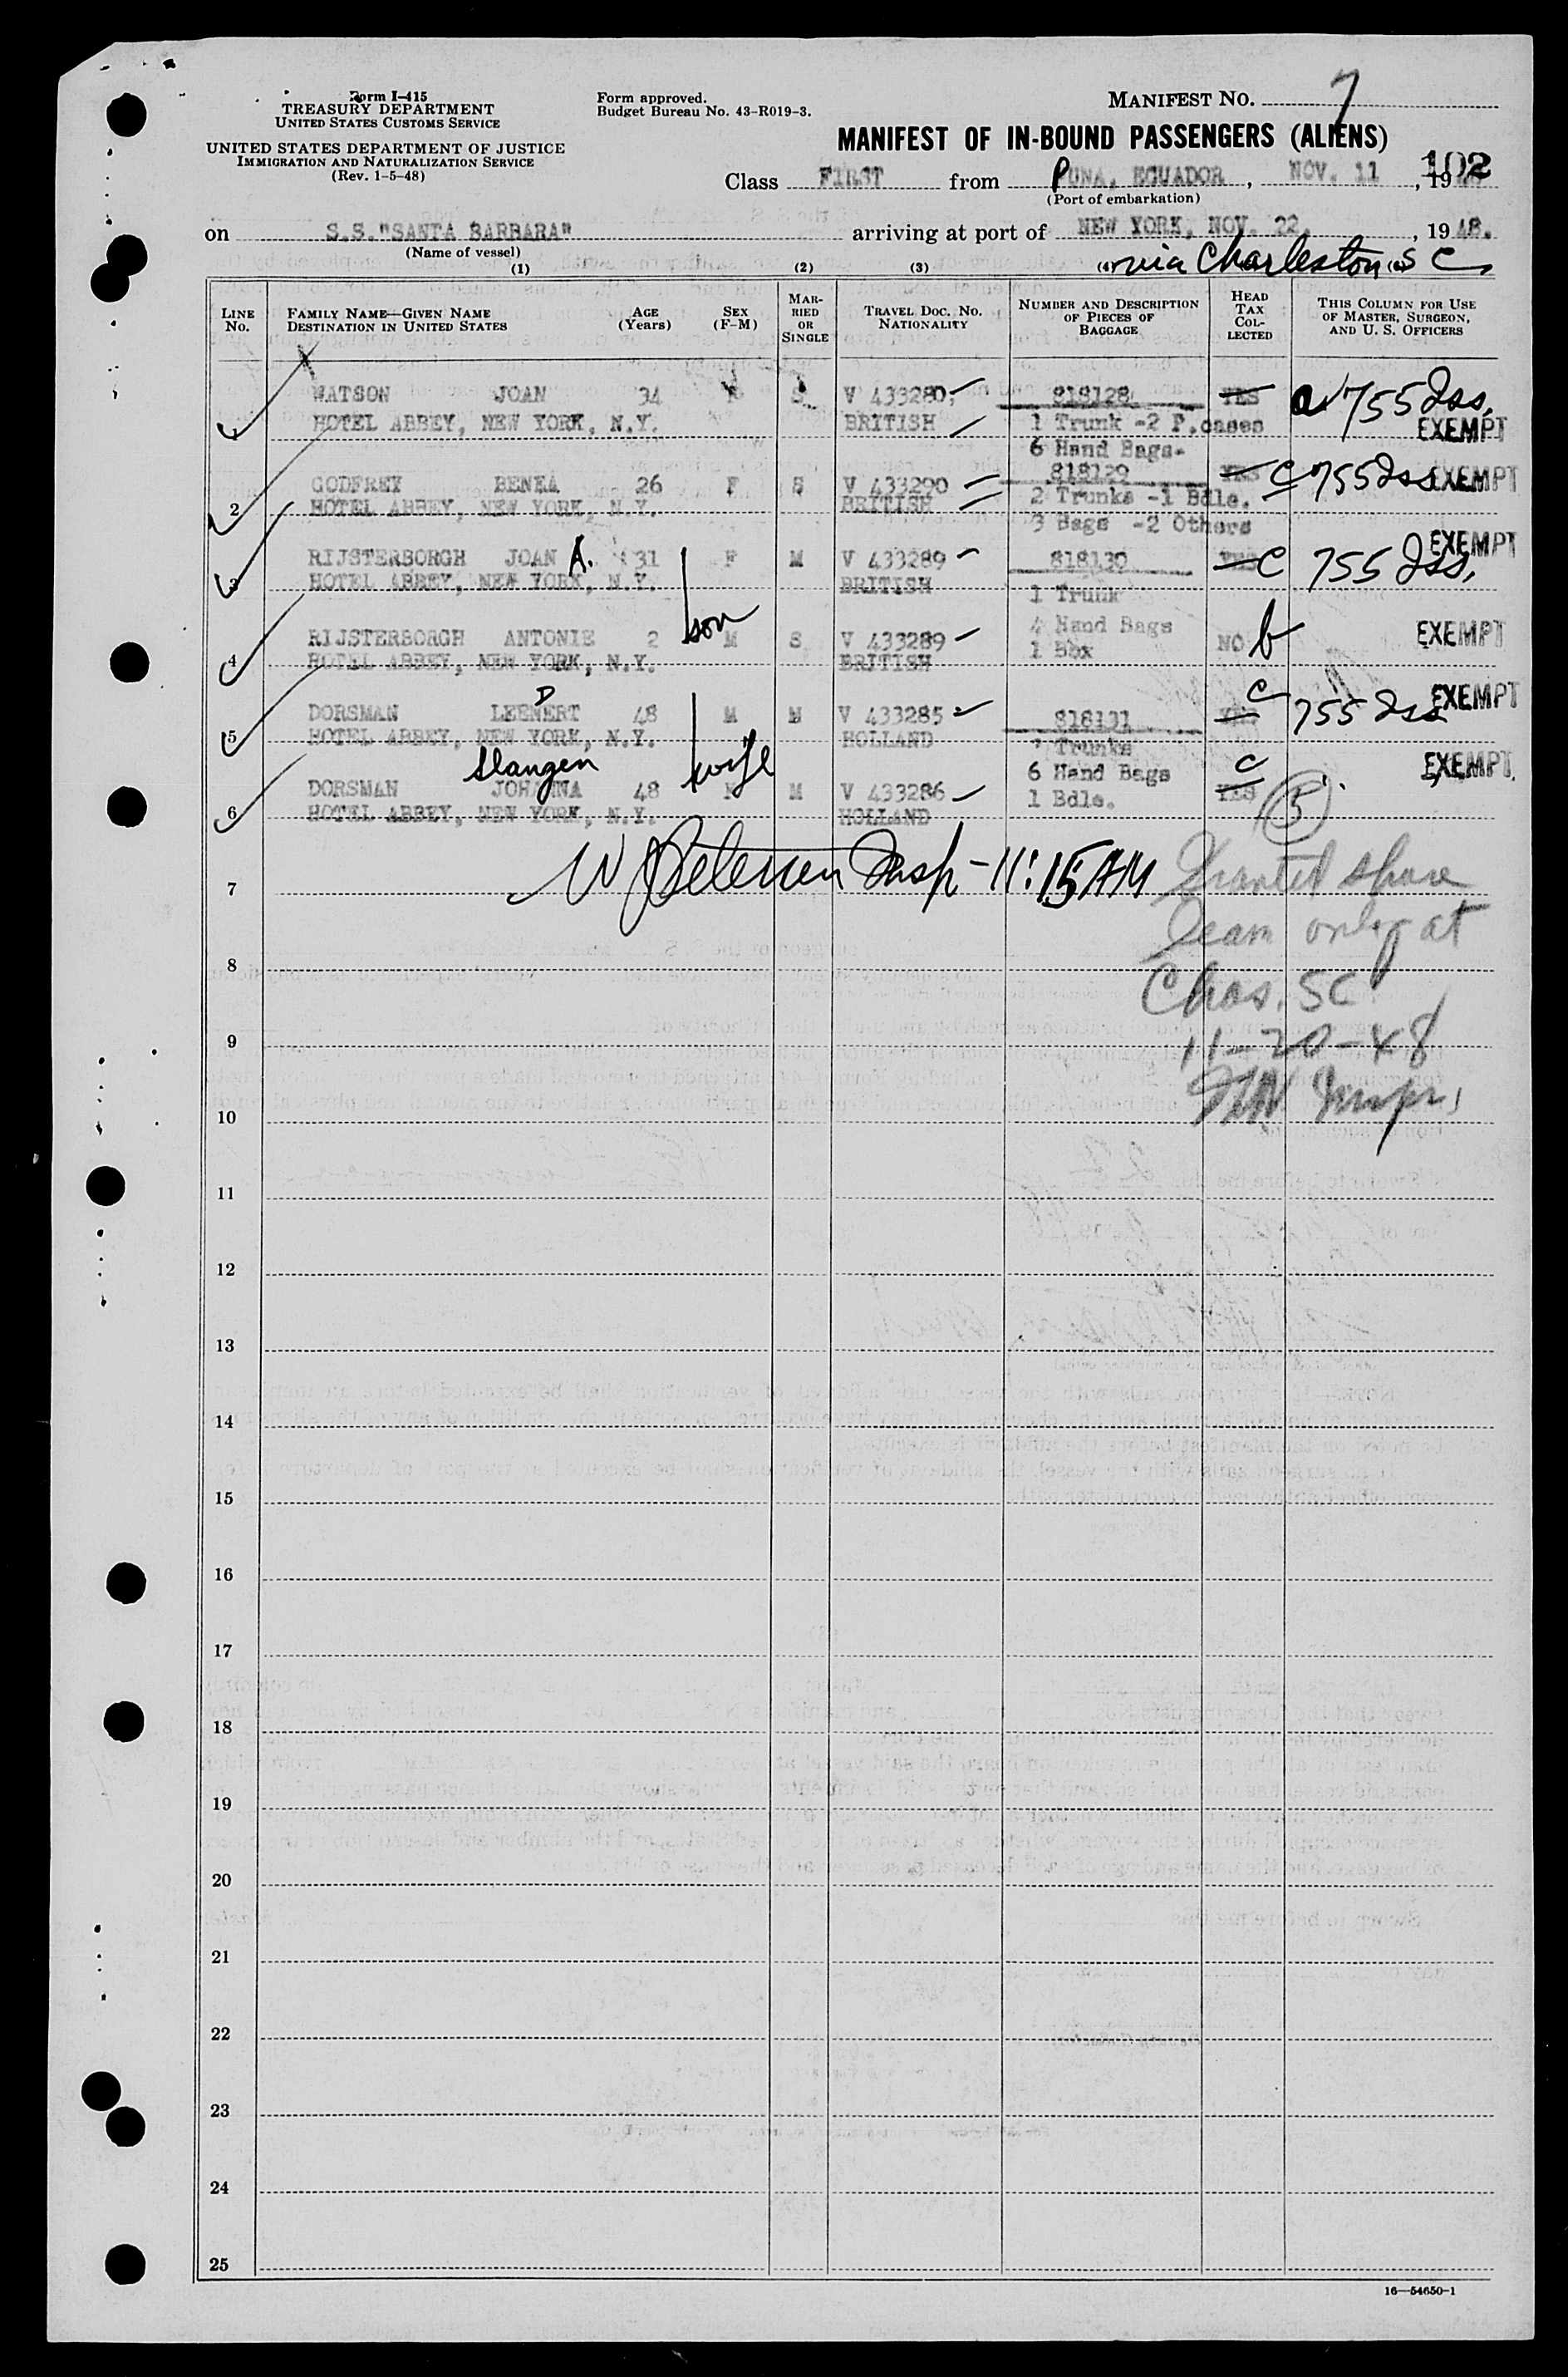 Form I-415
TREASURY DEPARTMENT
UNITED STATES CUSTOMS SERVICE
UNITED STATES DEPARTMENT OF JUSTICE
IMMIGRATION AND NATURALIZATION SERVICE
(Rev. 1-5-48)
Form approved.
Budget Bureau No. 43-R019-3.
MANIFEST NO. 7
MANIFEST OF IN-BOUND PASSENGERS (ALIENS)
102
Class FIRST from PUNA, ECUADOR, NOV. 11, 19
(Port of embarkation)
on S.S. "SANTA BARBARA" arriving at port of NEW YORK, NOV. 22, 1948.
(Name of vessel)
via Charleston S C
(1) (2) (3) (4)
LINE No. FAMILY NAME—GIVEN NAME DESTINATION IN UNITED STATES AGE (Years) SEX (F-M) MARRIED OR SINGLE TRAVEL DOC. NO. NATIONALITY NUMBER AND DESCRIPTION OF PIECES OF BAGGAGE HEAD TAX COLLECTED THIS COLUMN FOR USE OF MASTER, SURGEON, AND U. S. OFFICERS
WATSON JOAN 34 F S V 433280, 818128 YES a 755 Iss.
1 HOTEL ABBEY, NEW YORK, N.Y. BRITISH 1 Trunk -2 P.cases EXEMPT
6 Hand Bags-
GODFREY BENEA 26 F S V 433290 818129 YES C 755 Iss EXEMPT
2 HOTEL ABBEY, NEW YORK, N.Y. BRITISH 2 Trunks -1 Bdle.
3 Bags -2 Others
RIJSTERBORGH JOAN A. 31 F M V 433289 818130 YES C 755 Iss. EXEMPT
3 HOTEL ABBEY, NEW YORK, N.Y. BRITISH 1 Trunk
son
RIJSTERBORGH ANTONIE 2 M S V 433289 4 Hand Bags NO b EXEMPT
4 HOTEL ABBEY, NEW YORK, N.Y. BRITISH 1 Box
DORSMAN LEENERT D 48 M M V 433285 818131 YES C 755 Iss EXEMPT
5 HOTEL ABBEY, NEW YORK, N.Y. HOLLAND Trunks
Slangen wife
DORSMAN JOHANNA 48 F M V 433286 6 Hand Bags YES C EXEMPT
6 HOTEL ABBEY, NEW YORK, N.Y. HOLLAND 1 Bdle. 5
7 W Petersen Insp - 11:15 AM Granted shore
leave only at
8
Chas. SC
9 11-20-48
Inspr.
10
11
12
13
14
15
16
17
18
19
20
21
22
23
24
25
16—54650-1